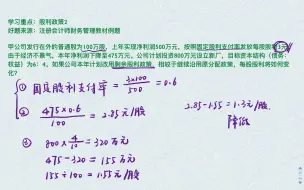 学习重点：股利政策2
好题来源：注册会计师财务管理教材例题
甲公司发行在外的普通股为100万股，上年实现净利润500万元，按照固定股利支付率发放每股股利3元，
由于经济不景气，本年净利润下降至475万元。公司计划投资800万元设立新厂，目标资本结构（债务：
权益）为6：4。如果公司本年计划改用剩余股利政策，相较于继续沿用原分配政策，每股股利将如何变
化？
① 固定股利支付率 = 3×100/500 = 0.6
② 475×0.6/100 = 2.85元/股
③ 800×4/10 = 320万元
475-320 = 155万元
155÷100 = 1.55元/股
2.85-1.55=1.3元/股
降低